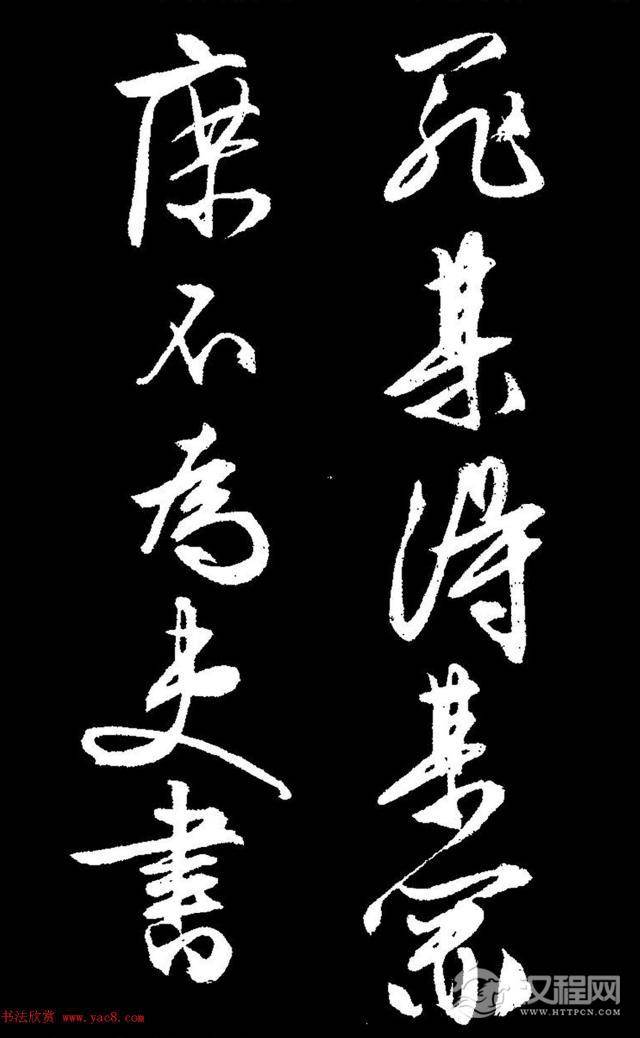 死某得某罪
庶不為史書
书法欣赏 www.yac8.com
汉程网
WWW.HTTPCN.COM